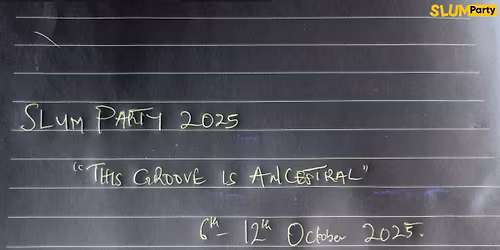 SLUM Party
SLUM PARTY 2025
"THIS GROOVE IS ANCESTRAL"
6th - 12th October 2025.